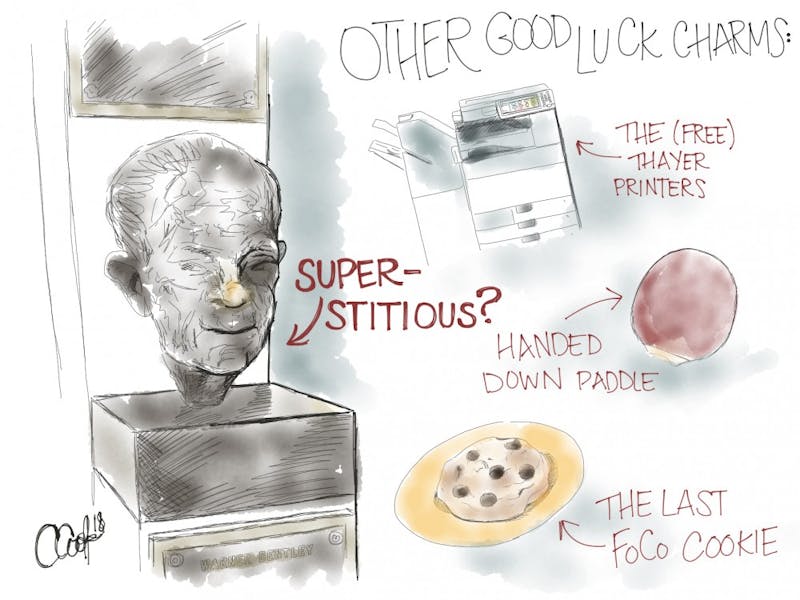 OTHER GOOD LUCK CHARMS:
THE (FREE)
THAYER
PRINTERS
SUPER-
STITIOUS?
HANDED
DOWN PADDLE
THE LAST
FoCo COOKIE
CCook '18
WARNER BENTLEY